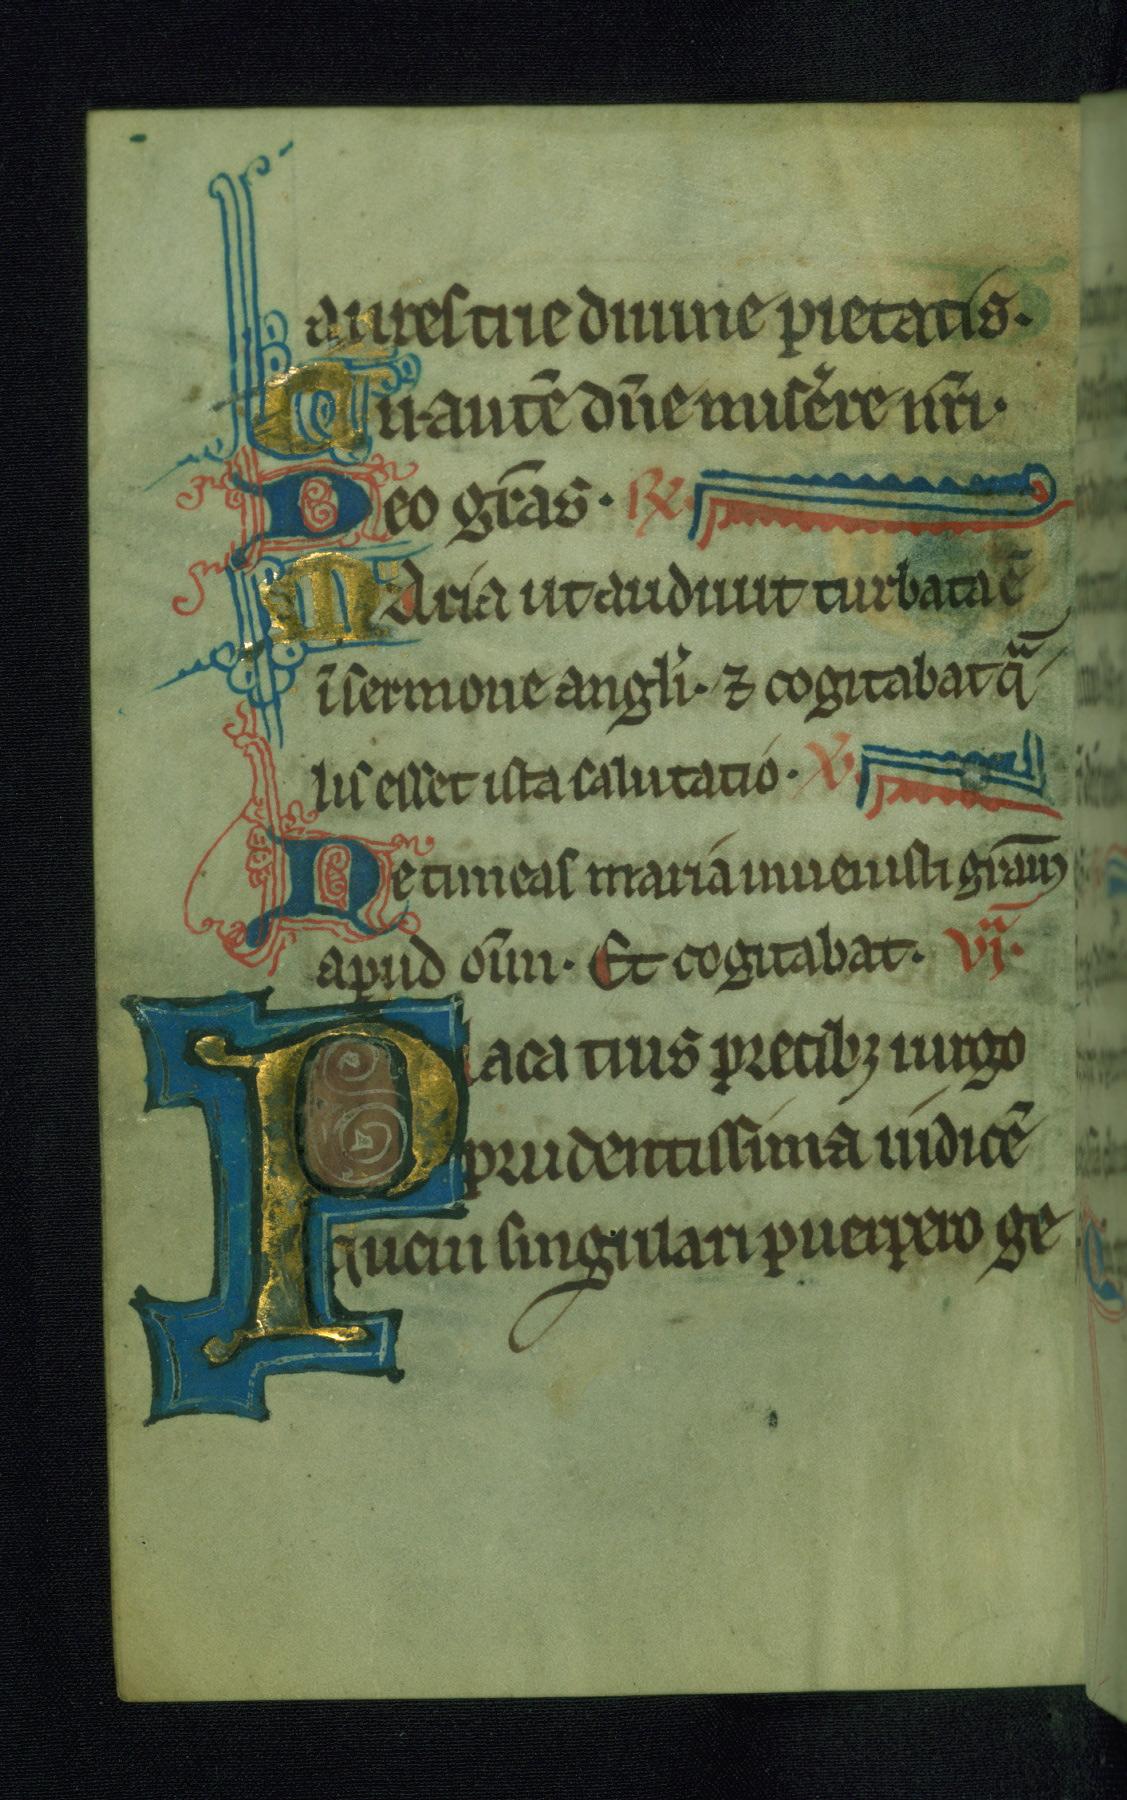 aures tue diuine pietatis.
Tu autē dñe misr̃ere nr̃i.
Deo gr̃as. ℞.
Maria ut audiuit turbata ē
ī sermone angl̃i. ⁊ cogitabat qͣ
lis esset ista salutatio. ℣.
Ne timeas maria inuenisti gr̃am
apud dñm. Et cogitabat. vjͣ.
Placatius precibꝫ uirgo
prudentissima iudicē
quem singulari puerpero ge